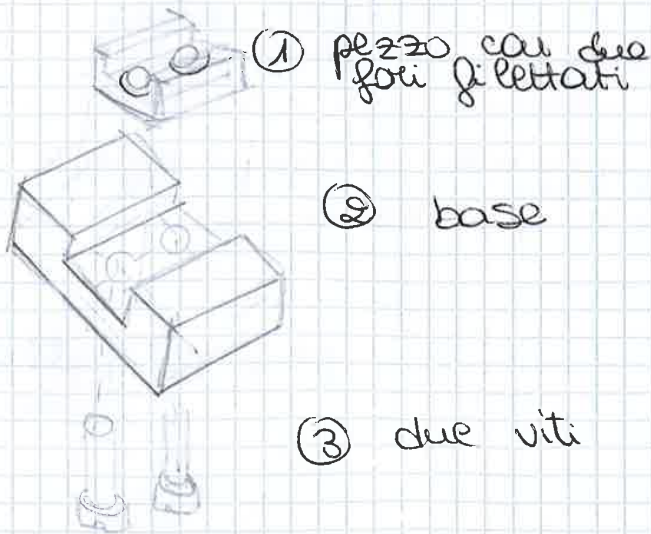 ① pezzo con due
fori filettati
② base
③ due viti